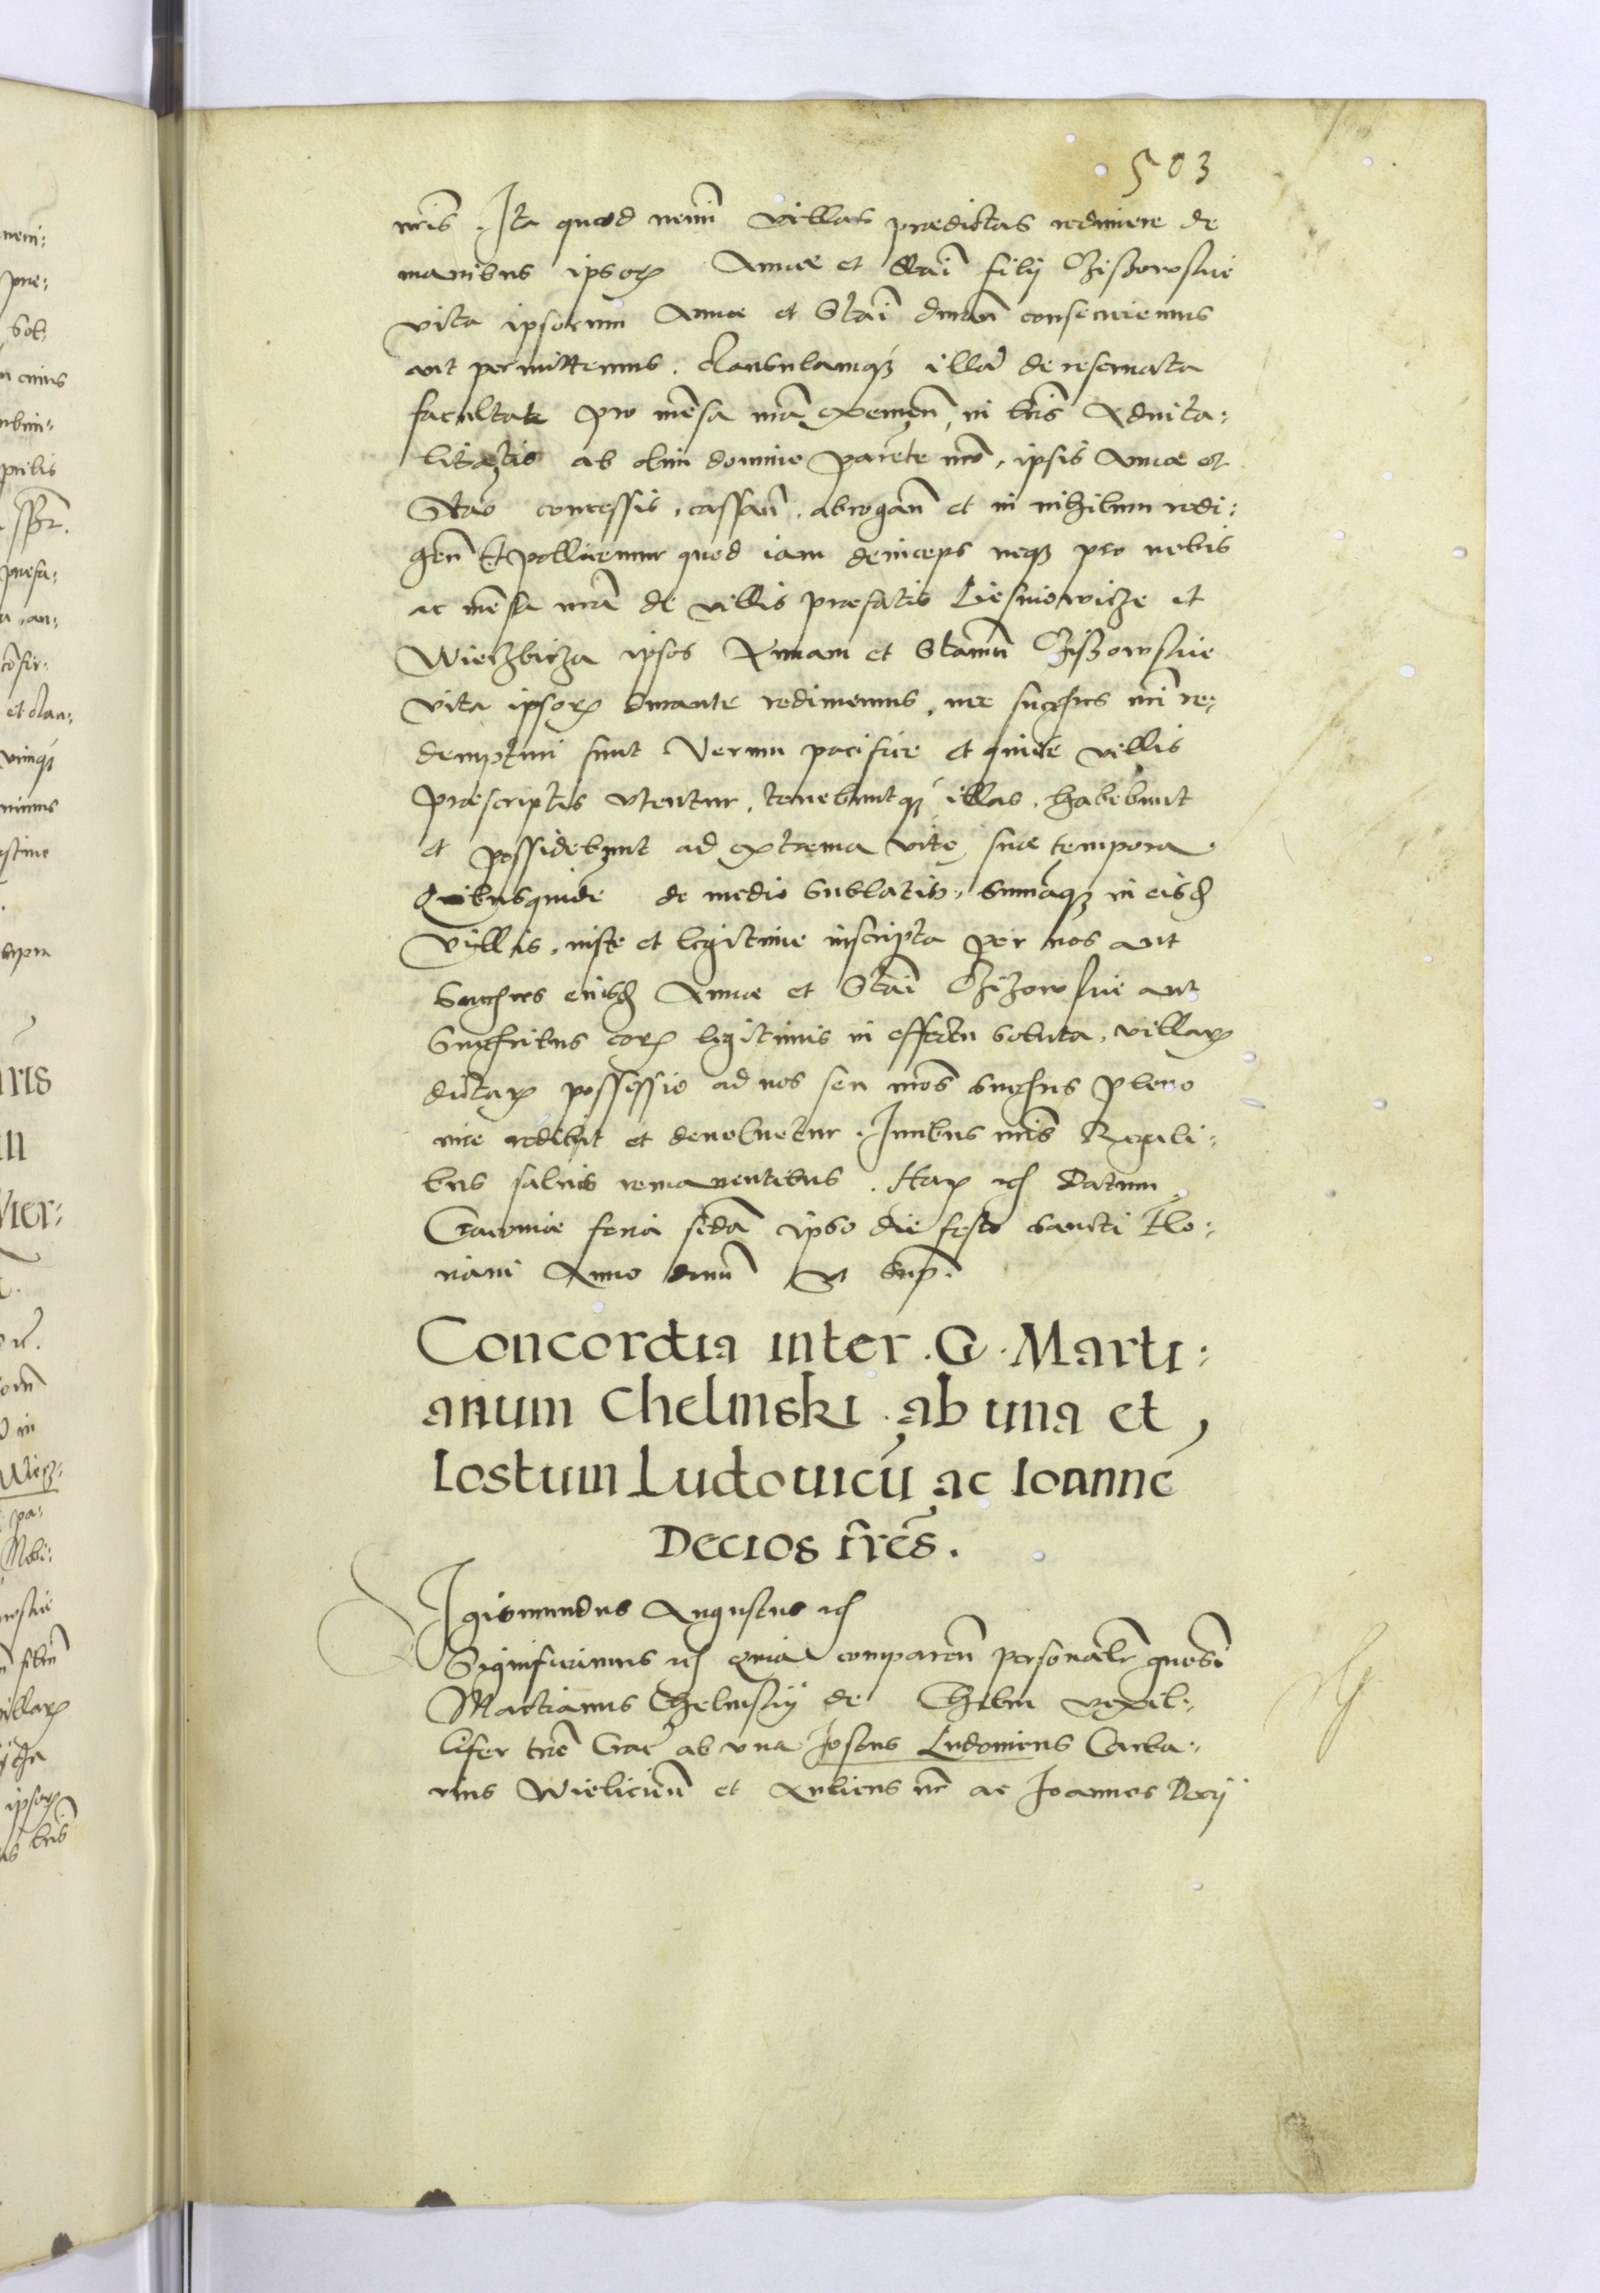 503
nris. Ita quod nemini villas praedictas redimere de
manibus ipsorum Annae et Stani filij Cziszowskie
vita ipsorum Annae et Stani duran consenciemus
aut permittemus. Clausulamque illam de reservata
facultate pro mensa nra exemen, in lris Advita:
litatis ab olim domino parente nro, ipsis Annae et
Stao concessis, cassan, abrogan et in nihilum redi:
gen. Et pollicemur quod iam deinceps neque pro nobis
ac mensa nra de villis praefatis Liesniowicze et
Wierzbicza ipsos Annam et Stanum Cziszowskie
vita ipsorum durante redimemus, nec succhres nri re:
dempturi sunt. Verum pacifice et quiete villis
praescriptis utentur, tenebuntque illas, habebunt
et possidebunt ad extrema vite suae tempora.
Quibusquide de medio sublatis, summaque in eisdem
villis, iuste et legitime inscripta per nos aut
succhres eidem Annae et Stani Czizowskie aut
succhribus eorum legitimis in effectu soluta, villarum
dictarum possessio ad nos seu nros succhres pleno
iure redibit et devolvetur. Iuribus nris Regali:
bus salvis remanentibus. Harum etc Datum
Cracoviae feria scda ipso die festo sancti Flo:
riani Anno dnni ut sup.
Concordia inter .G. Marti:
anum Chelmski ab una et
Iostum Ludouicu ac Ioanne
Decios fres.
Sigismundus Augustus etc
Significamus etc Quia comparen personalr gnosi
Martianus Chelmskij de Chelm vexil:
lifer tre Crac ab una Iostus Ludovicus Carba:
rius Wielicien et Aulicus nr ac Ioannes Decij